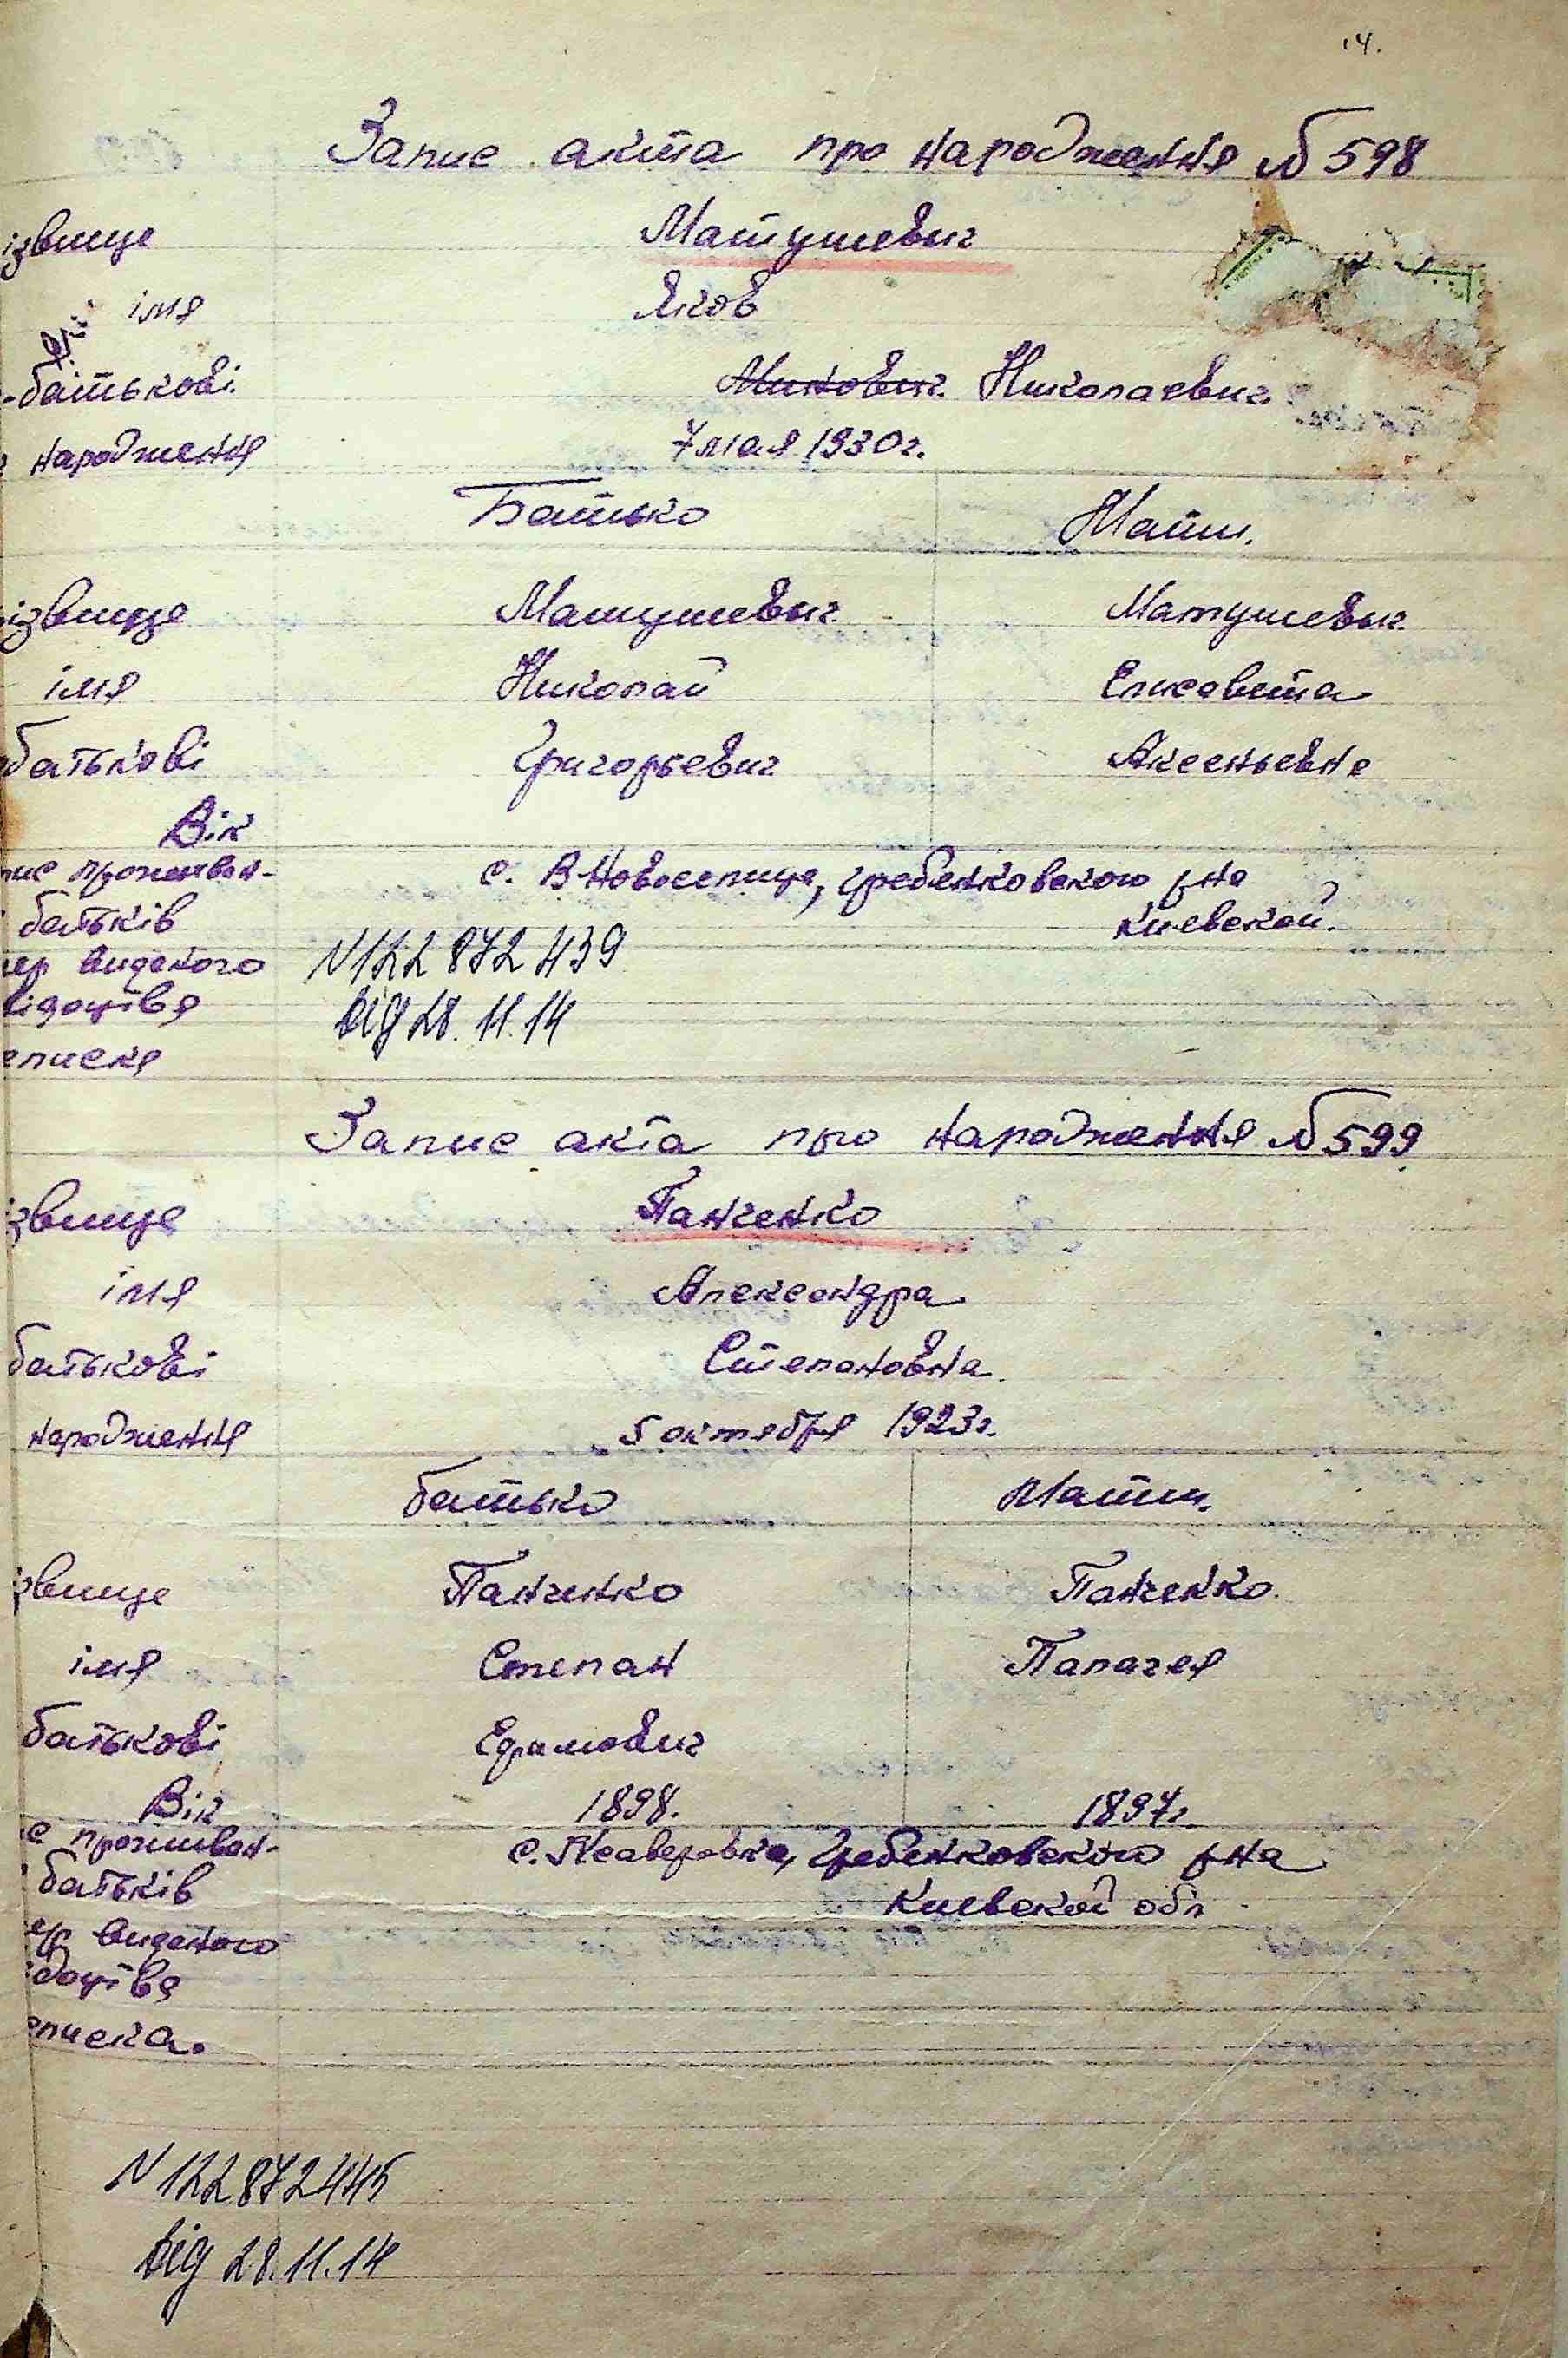 Запис акта про народження № 598
ізвище Матушевич
імя Яков
-батькові Минович. Николаевич.
народження 7 мая 1930г.
Батько Мати.
ізвище Матушевич Матушевич.
імя Николай Елисавета
батькові Григорьевич Аксеньевна
Вік
проживан- с. В-Новоселица, Гребенковского р-на
батьків Киевской.
ер виданого N 122 872 439
ідоцтва від 28.11.14
Запис акта про народження № 599
звище Панченко
імя Александра
батькові Степановна
народження 5 октября 1923г.
батько Мати.
звище Панченко Панченко.
імя Степан Палагея
батькові Ефимович
Вік 1898. 1897г.
с проживан- с. Ксаверовка, Гребенковского р-на
батьків Киевской обл
ер виданого
ідоцтва
N 122872445
від 28.11.14